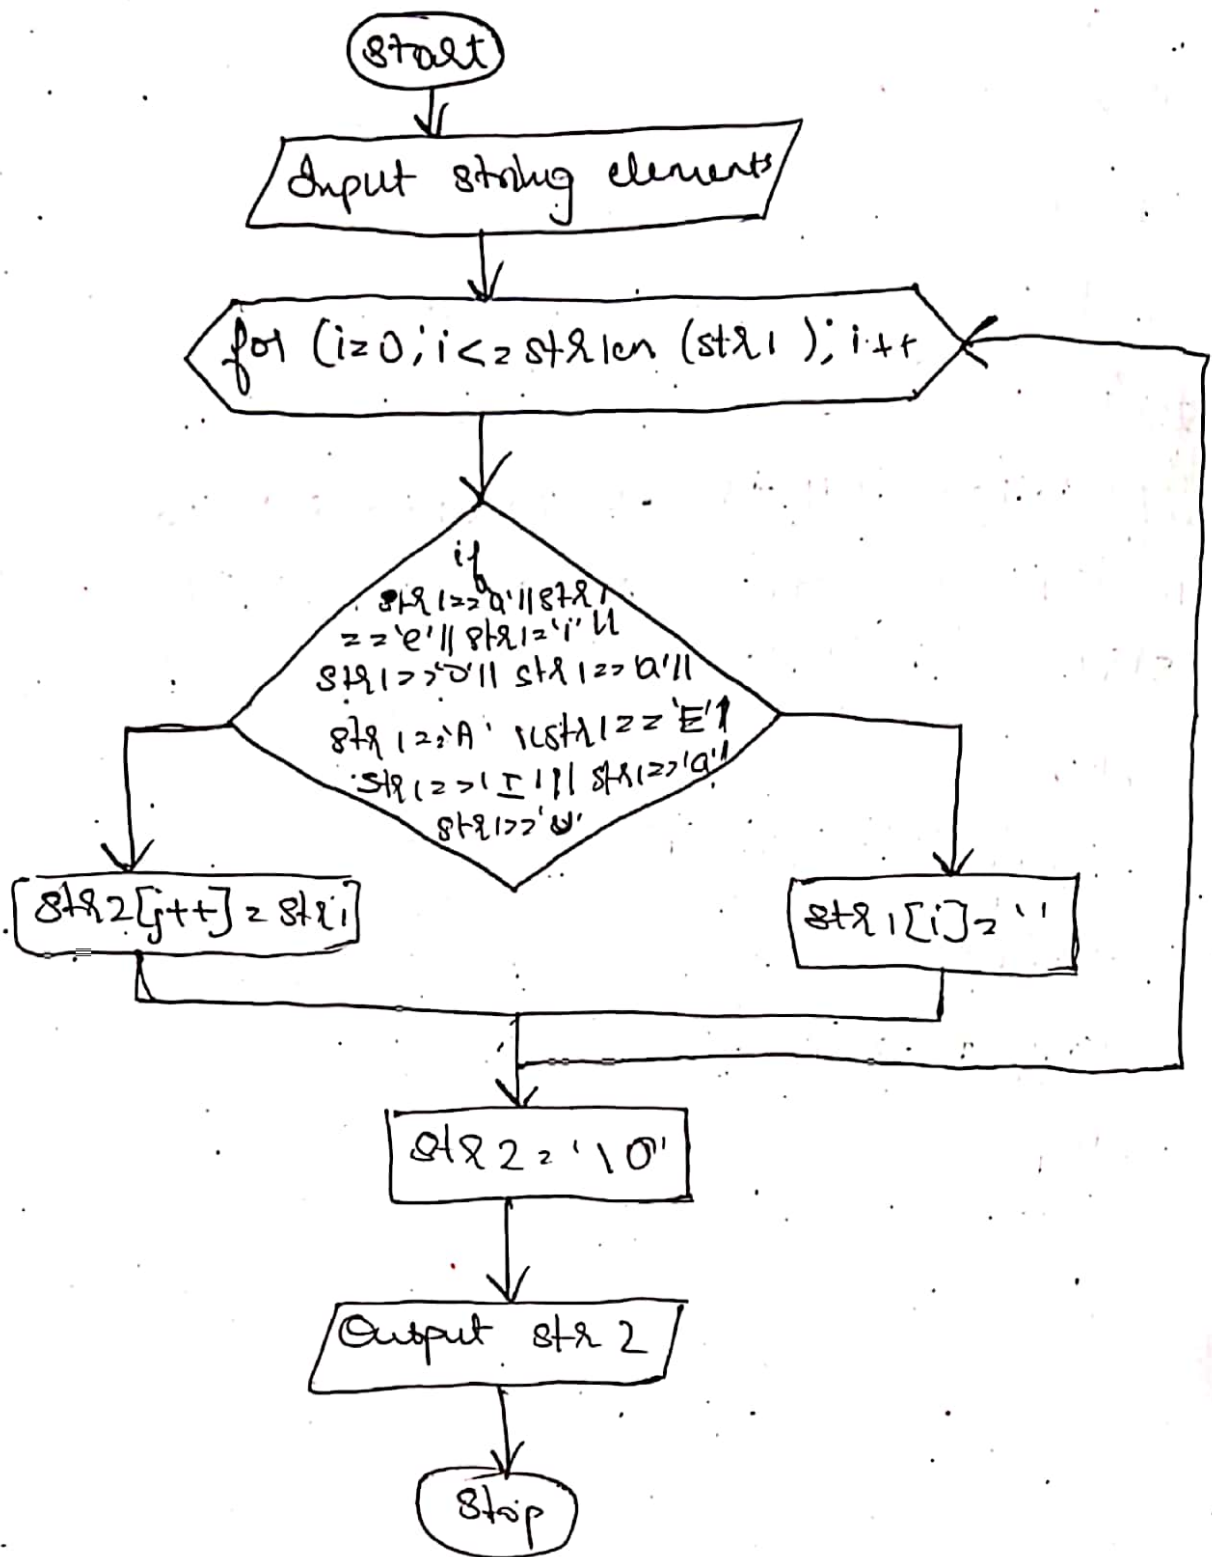 Start
Input string elements
for (i=0; i<=strlen (str1); i++
if
str1=='a'||str1
=='e'||str1='i'||
str1=='o'|| str1=='a'||
str1=='A' ||str1=='E'|
str1=='I'|| str1=='a'||
str1=='u'
str2[j++]=stri
str1[i]=''
str2='\0'
Output str2
Stop